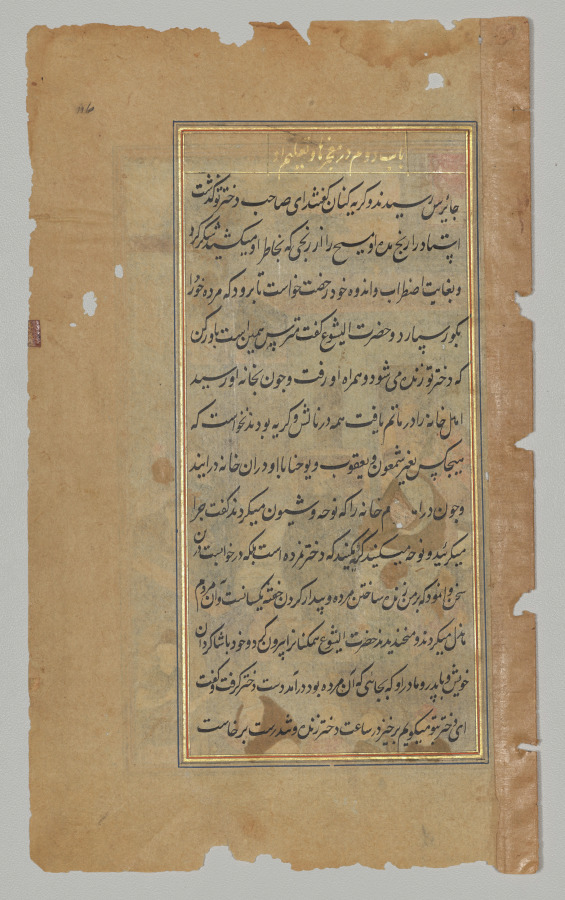 باب دوم در معجزها و تعلیم او
جائرس رسیدند و گریه کنان گفتند ای صاحب دختر تو گذشت
استاد را رنج مده او مسیح را از رنجی که بخاطر او میکشید شکر کرد
و بغایت اضطراب و اندوه خود رخصت خواست تا برود که مرده خود را
بگور سپارد و حضرت ایشوع گفت مترس همین است باور کن
که دختر تو زنده می شود و همراه او رفت و چون بخانه او رسید
اهل خانه را در ماتم یافت همه در نالش و گریه بودند نخواست که
هیچکس بغیر شمعون و یعقوب و یوحنا با او دران خانه درایند
و چون درا م خانه را که نوحه و شیون میکردند گفت چرا
میگرئید و نوحه میکنید گریه مکنید که دختر نمرده است بلکه در خوابست درین
سخن وانمود که بر من زنده ساختن مرده و بیدار کردن خفته یکسانست و آن مردم
هزل میکردند و میخندیدند حضرت ایشوع همکنانرا بیرون کرد و خود با شاگردان
خویش و با پدر و مادر او که بجائی که آن مرده بود درآمد دست دختر گرفت و گفت
ای دختر بتو میگویم برخیز در ساعت دختر زنده و تندرست برخاست